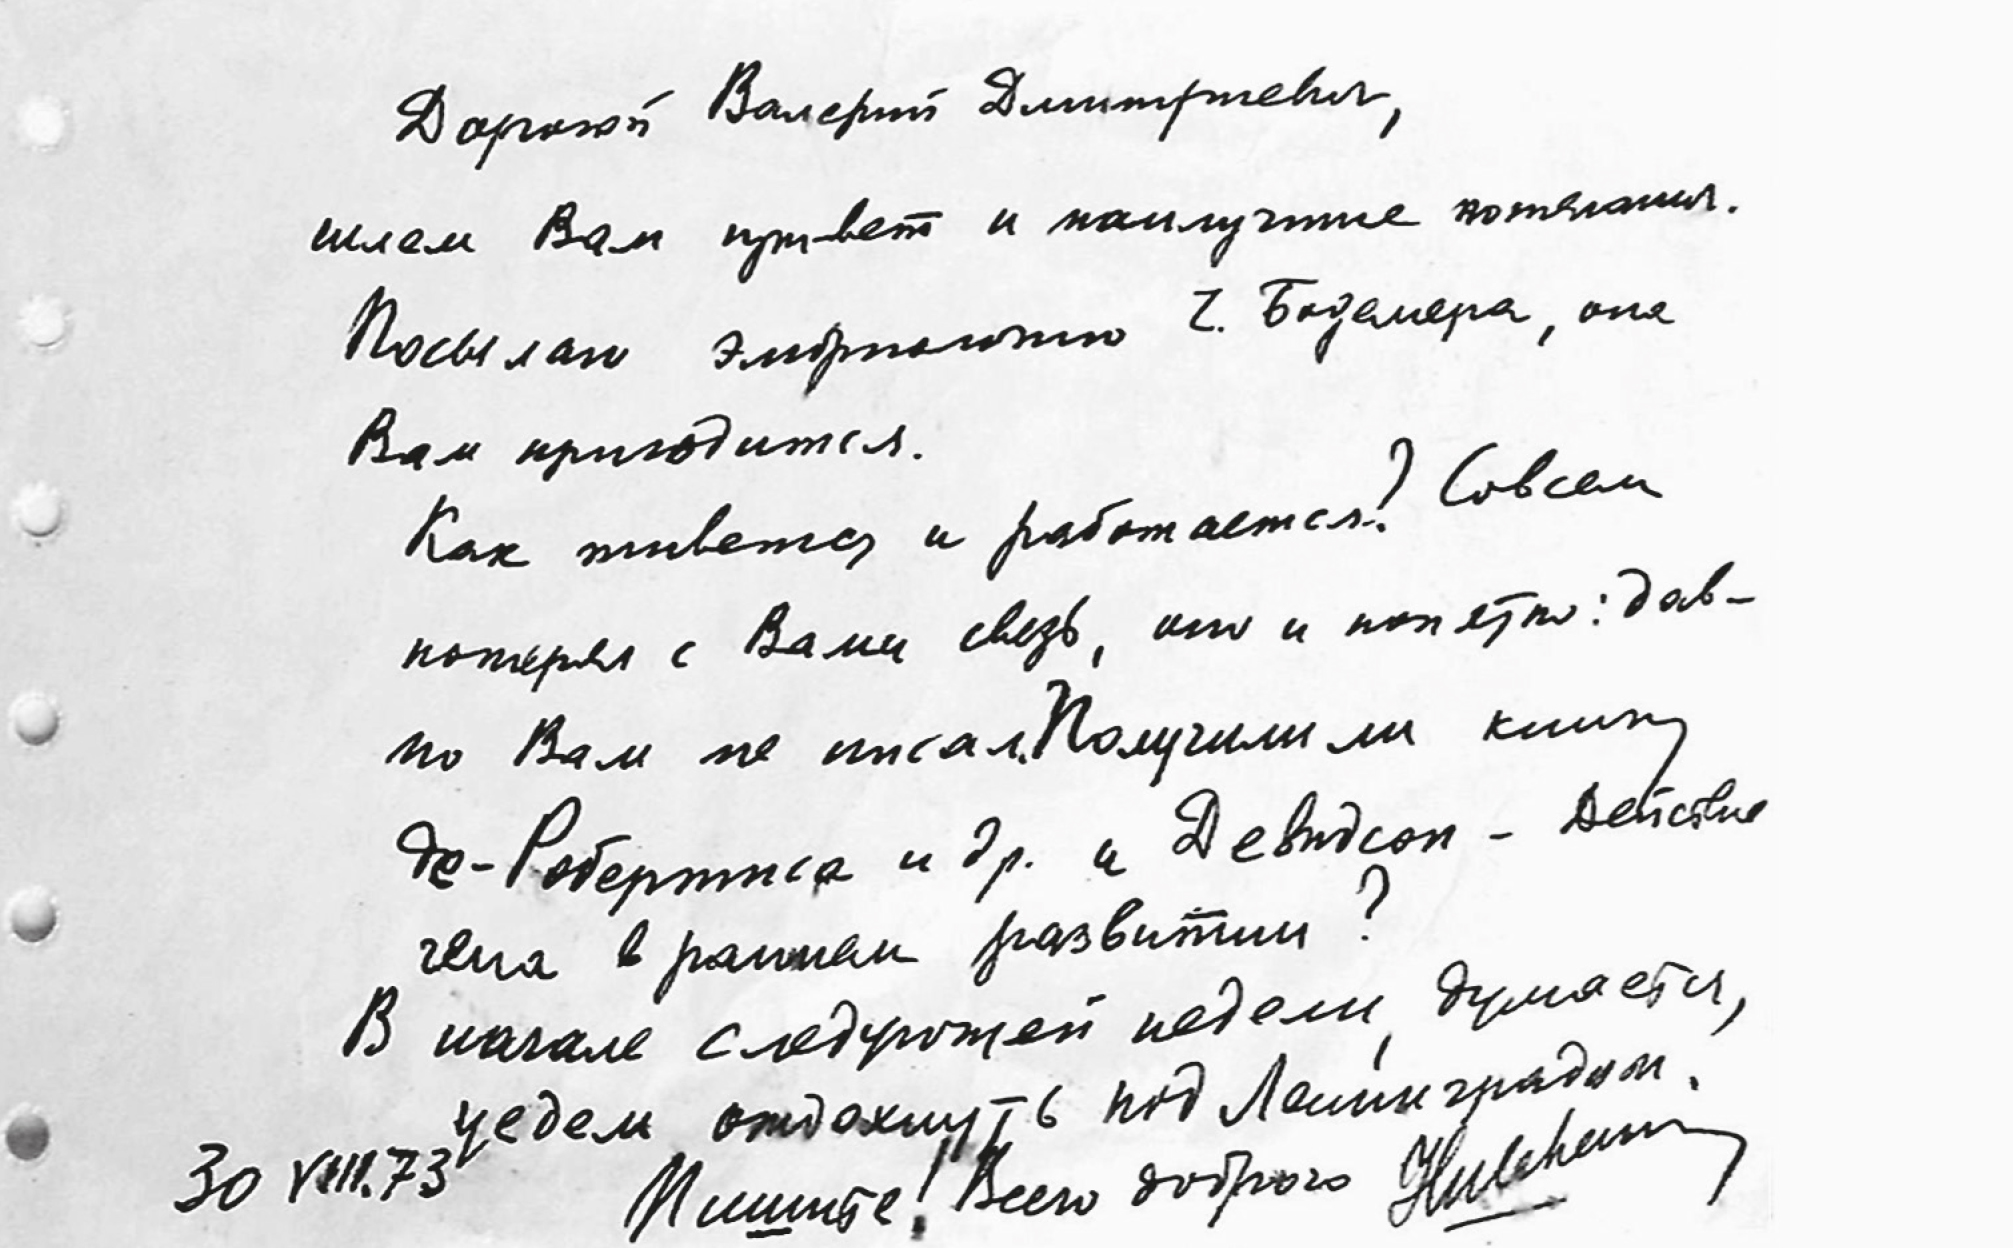 Дорогой Валерий Дмитриевич,
шлем Вам привет и наилучшие пожелания.
Посылаю эмбриологию Ч. Бодемера, она
Вам пригодится.
Как живется и работается? Совсем
потерял с Вами связь, оно и понятно: дав-
но Вам не писал. Получили ли книгу
де-Робертиса и др. и Девидсон - Действие
гена в раннем развитии?
В начале следующей недели, думается,
уедем отдохнуть под Ленинградом.
30 VIII.73
Пишите! Всего доброго